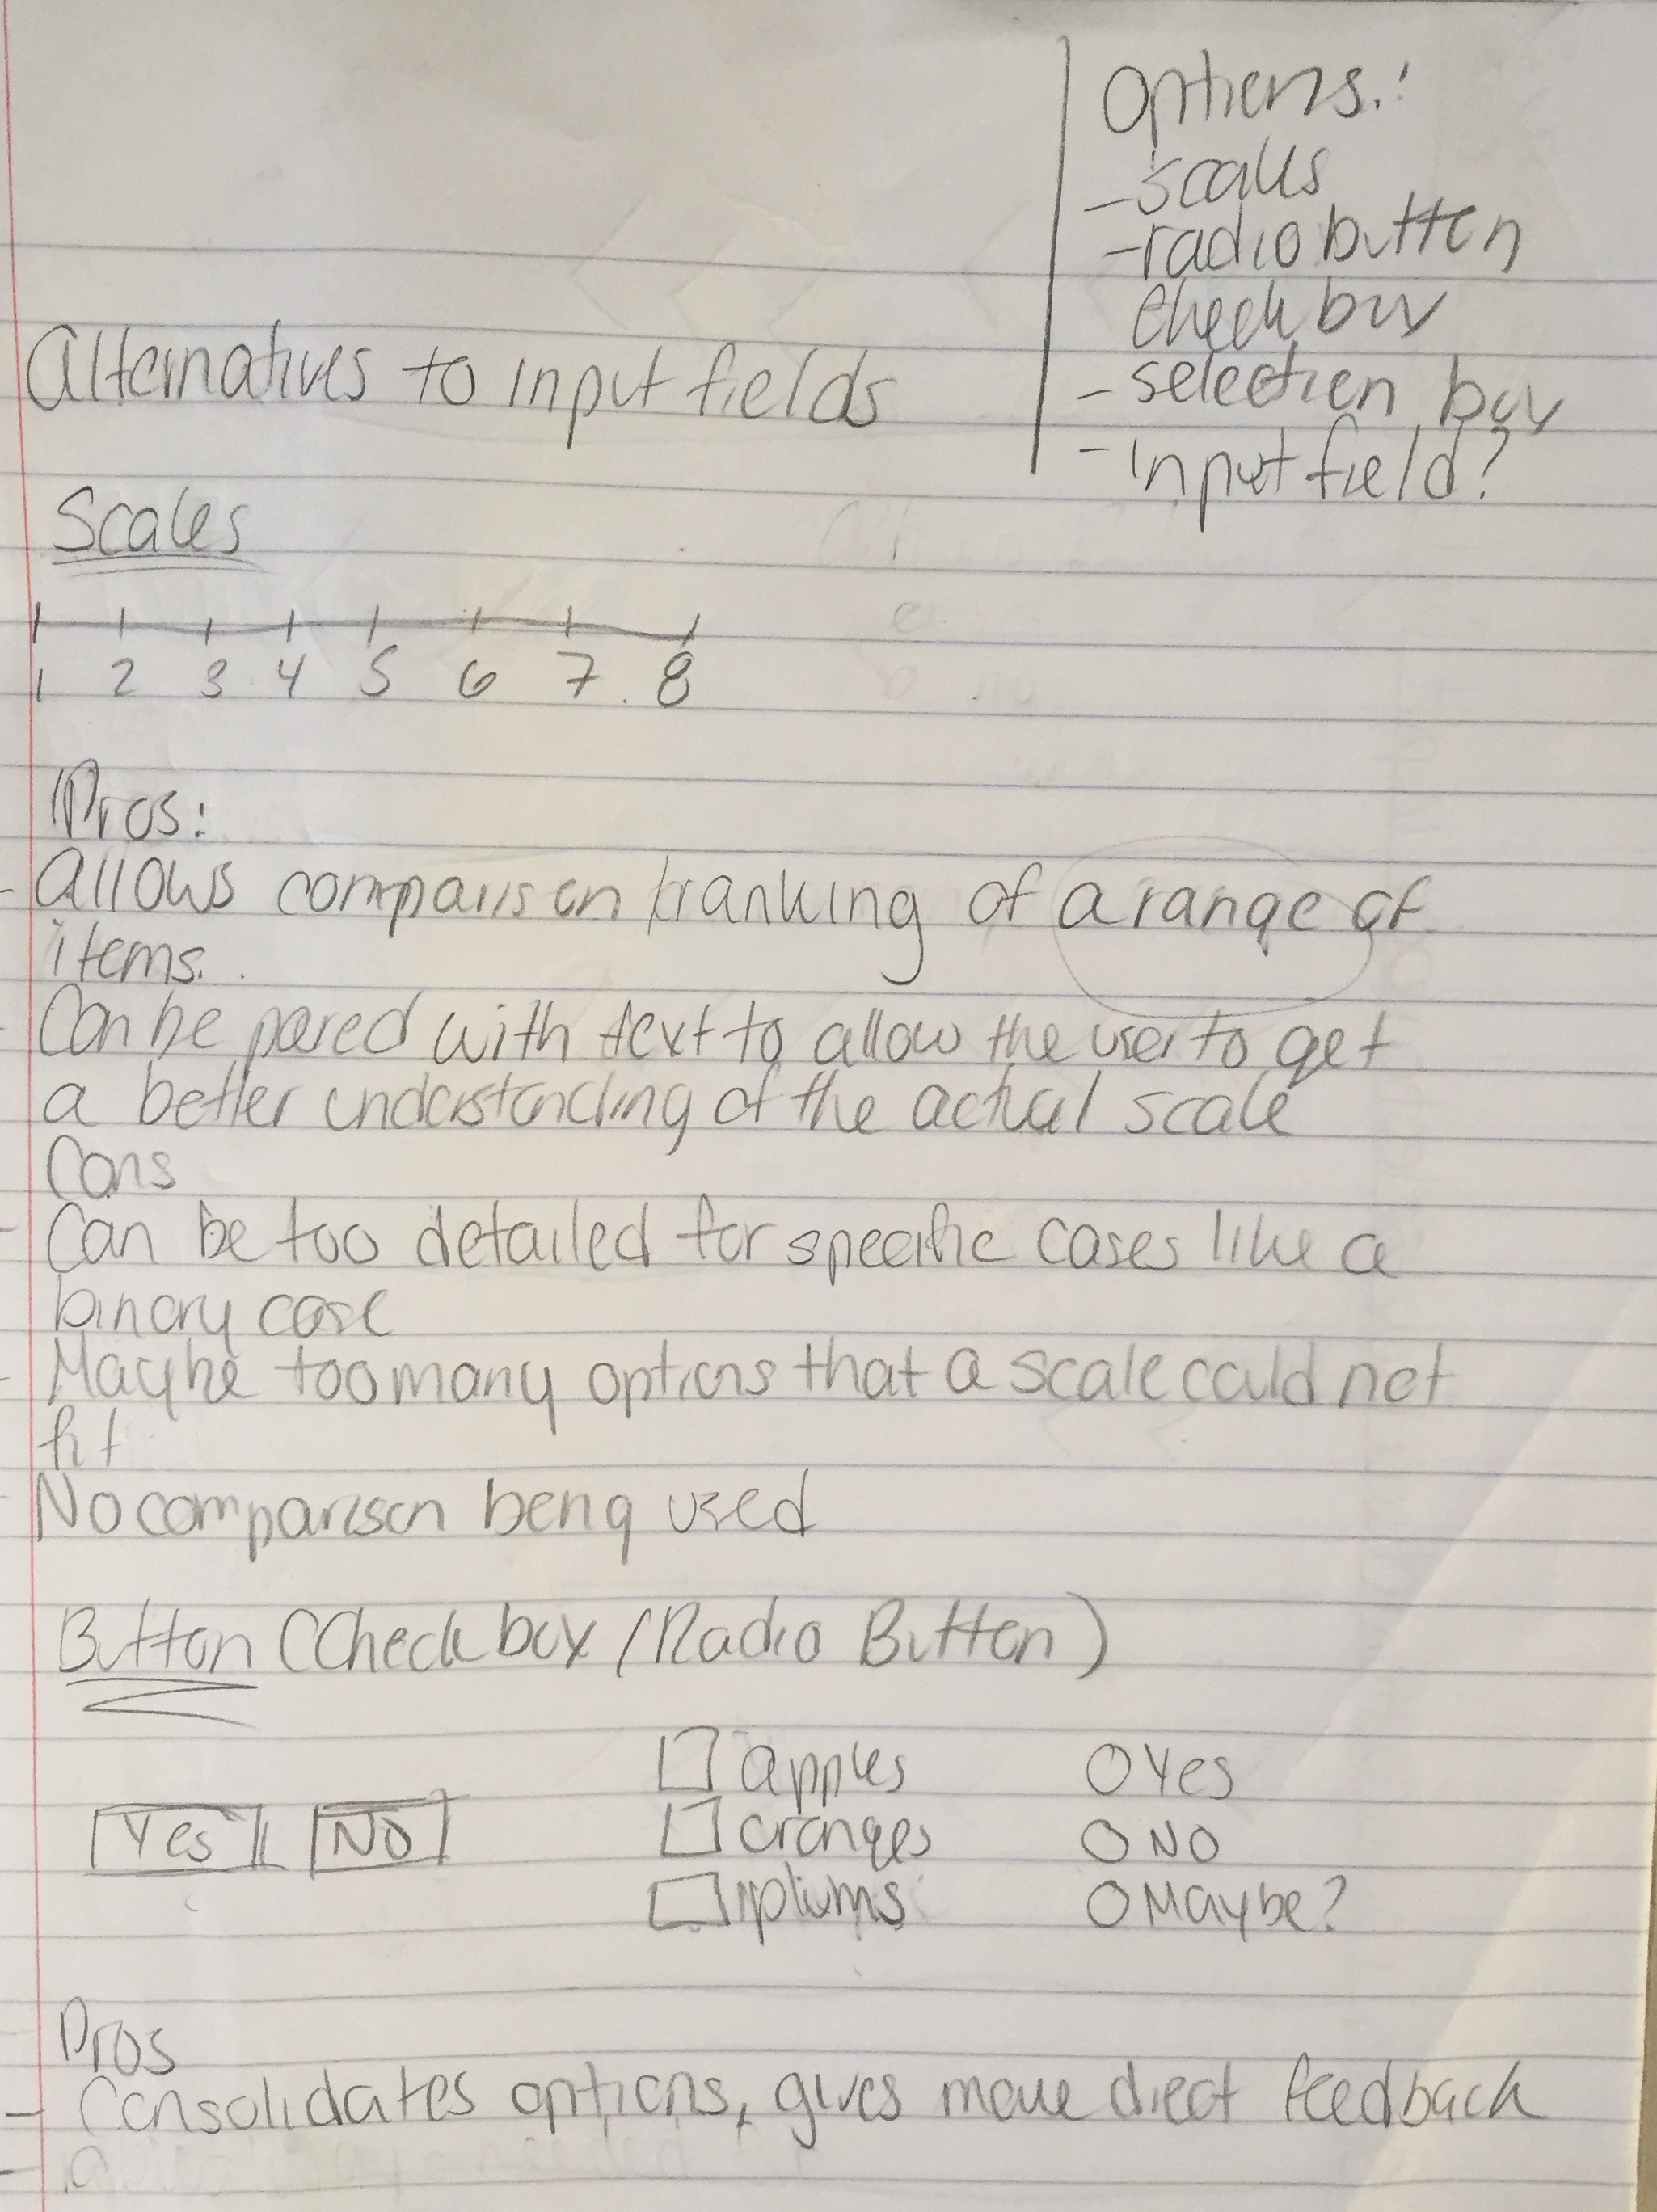 Options:
- scales
- radio button
check box
- selection box
- input field?
Alternatives to input fields
Scales
1 2 3 4 5 6 7 8
Pros:
- Allows comparison/ranking of a range of
items.
- Can be pared with text to allow the user to get
a better understanding of the actual scale
Cons
- Can be too detailed for specific cases like a
binary case
- Maybe too many options that a scale could not
fit
- No comparison being used
Button (Check box / Radio Button)
apples Yes
Yes No oranges No
plums Maybe?
Pros
- Consolidates options, gives more direct feedback
-